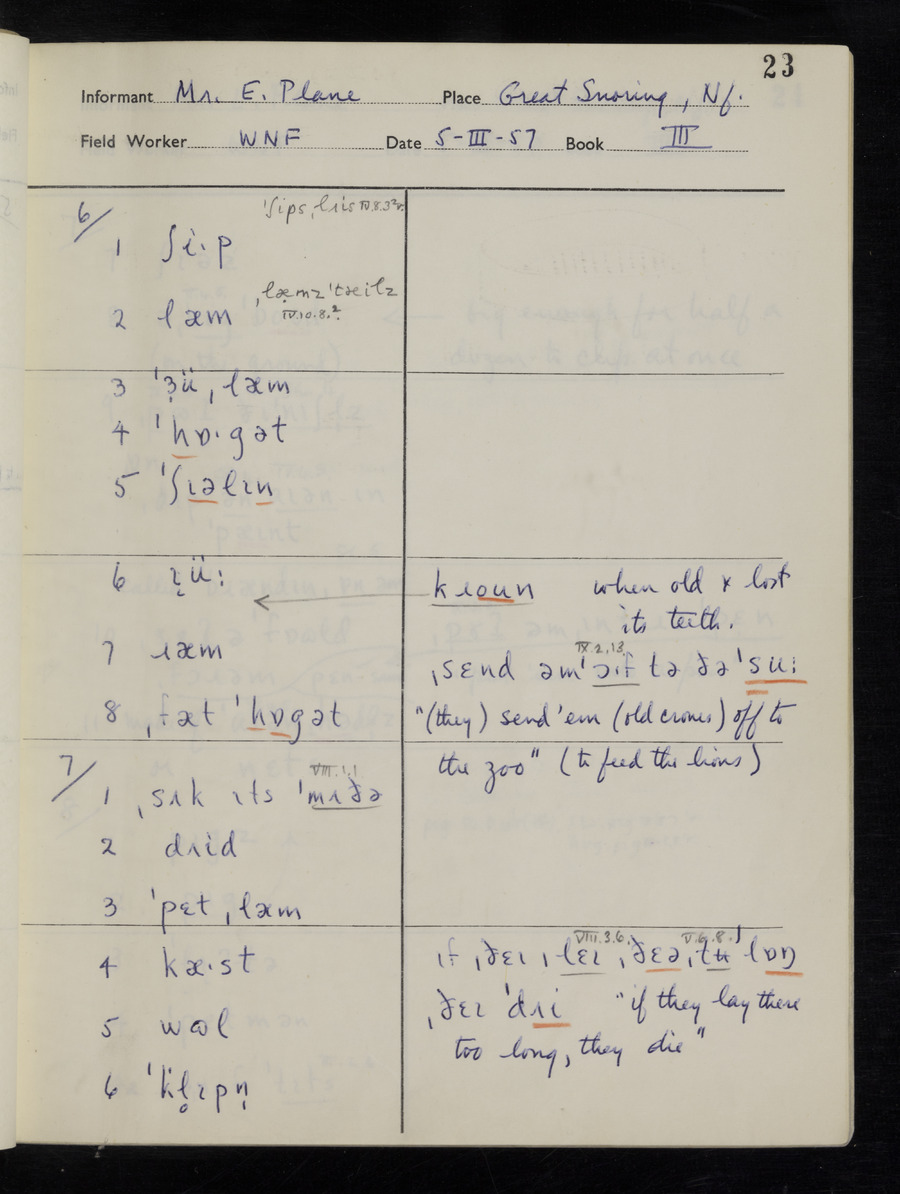 23
Informant Mr. E. Plane Place Great Snoring, Nf.
Field Worker WNF Date 5-III-57 Book III
6/
ˈʃips,lɪis IV.8.3
1 ʃi·p
ˌlæmzˈtæɪlz
2 læm IV.10.8.2
3 ˈʒüˌlæm
4 ˈhɒ·gət
5 ˈʃɪəlɪn
6 ɹü: kɹoun when old & lost
its teeth.
7 ɹæm ˌsɛnd əmˈɔɪf tə ðəˈsu: IX.2.13
8 ˌfætˈhɒgət "(they) send 'em (old crones) off to
the zoo" (to feed the lions)
7/
VIII.1.1
1 ˌsʌk ɪtsˈmʌðə
2 dɹid
3 ˈpɛtˌlæm
VIII.3.6. V.6.8.
4 kæ·st ɪfˌðɛɪˌlɛɪˌðɛəˌtʉˈlɒŋ
5 wʊl ˌðɛɪˈdʌi "if they lay there
too long, they die"
6 ˈkl̥ɪpn̩